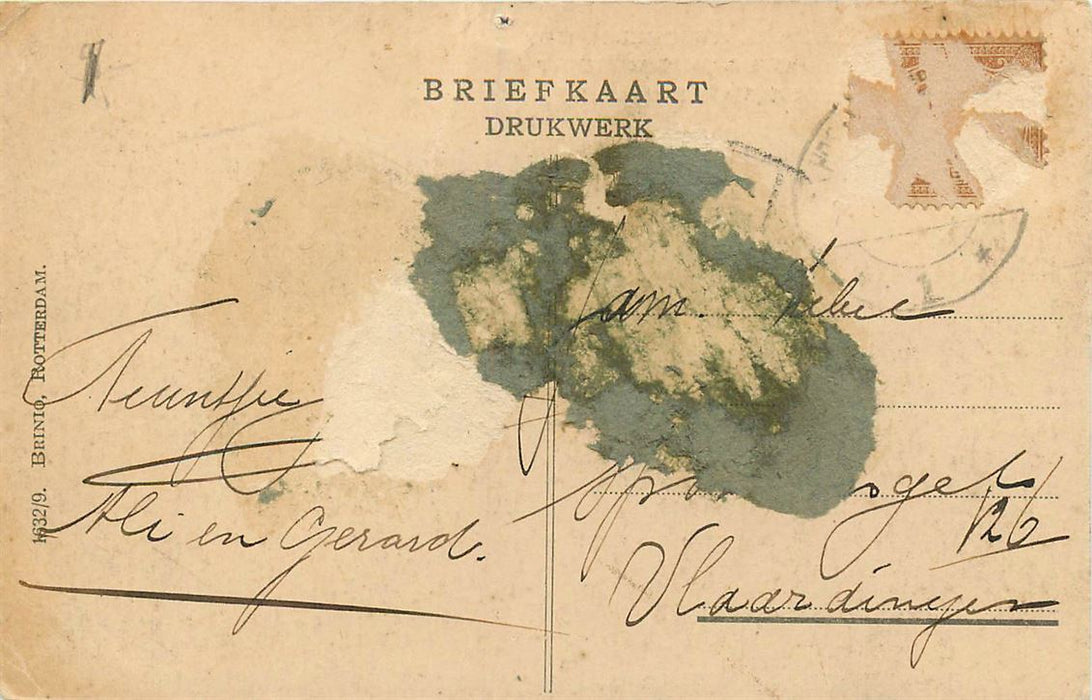 BRIEFKAART
DRUKWERK
1632/9. BRINIO, ROTTERDAM.
Teuntje
Ali en Gerard.
Fam.
126
Vlaardingen